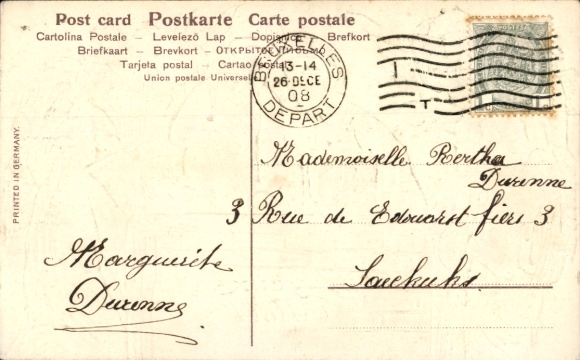 Post card Postkarte Carte postale
Cartolina Postale – Levelező Lap – Dopisnice – Brefkort
Briefkaart – Brevkort – ОТКРЫТОЕ ПИСЬМО
Tarjeta postal – Cartao postal
Union postale Universel
BRUXELLES
13-14
26 DECE
08
DEPART
T
PRINTED IN GERMANY.
Mademoiselle Bertha
Durenne
3 Rue de 3
Marguerite
Durenne